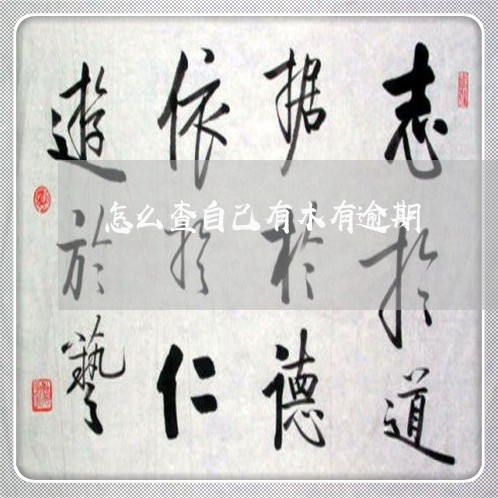 志於道
据於德
依於仁
遊於藝
怎么查自己有木有逾期